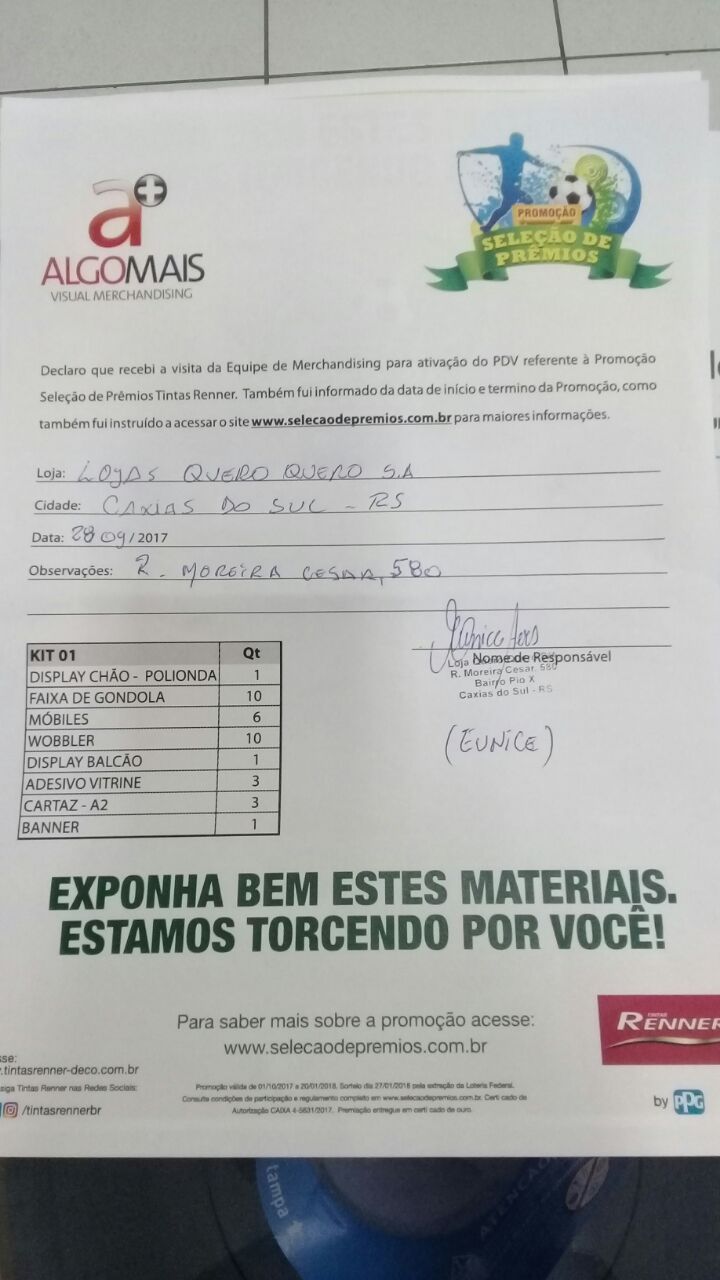 a+
ALGOMAIS
VISUAL MERCHANDISING
PROMOÇÃO
SELEÇÃO DE
PRÊMIOS
Declaro que recebi a visita da Equipe de Merchandising para ativação do PDV referente à Promoção
Seleção de Prêmios Tintas Renner. Também fui informado da data de início e termino da Promoção, como
também fui instruído a acessar o site www.selecaodepremios.com.br para maiores informações.
Loja: LOJAS QUERO QUERO S.A
Cidade: CAXIAS DO SUL - RS
Data: 28 09/2017
Observações: R. MOREIRA CESAR, 580
Nome de Responsável
Loja
R. Moreira Cesar, 580
Bairro Pio X
Caxias do Sul - RS
(EUNICE)
KIT 01 Qt
DISPLAY CHÃO - POLIONDA 1
FAIXA DE GONDOLA 10
MÓBILES 6
WOBBLER 10
DISPLAY BALCÃO 1
ADESIVO VITRINE 3
CARTAZ - A2 3
BANNER 1
EXPONHA BEM ESTES MATERIAIS.
ESTAMOS TORCENDO POR VOCÊ!
Para saber mais sobre a promoção acesse:
www.selecaodepremios.com.br
TINTAS
RENNER
by PPG
sse:
.tintasrenner-deco.com.br
siga Tintas Renner nas Redes Sociais:
/tintasrennerbr
Promoção válida de 01/10/2017 a 20/01/2018. Sorteio dia 27/01/2018 pela extração da Loteria Federal.
Consulte condições de participação e regulamento completo em www.selecaodepremios.com.br. Certi cado de
Autorização CAIXA 4-5631/2017. Premiação entregue em certi cado de ouro.
tampa
ATENÇÃO